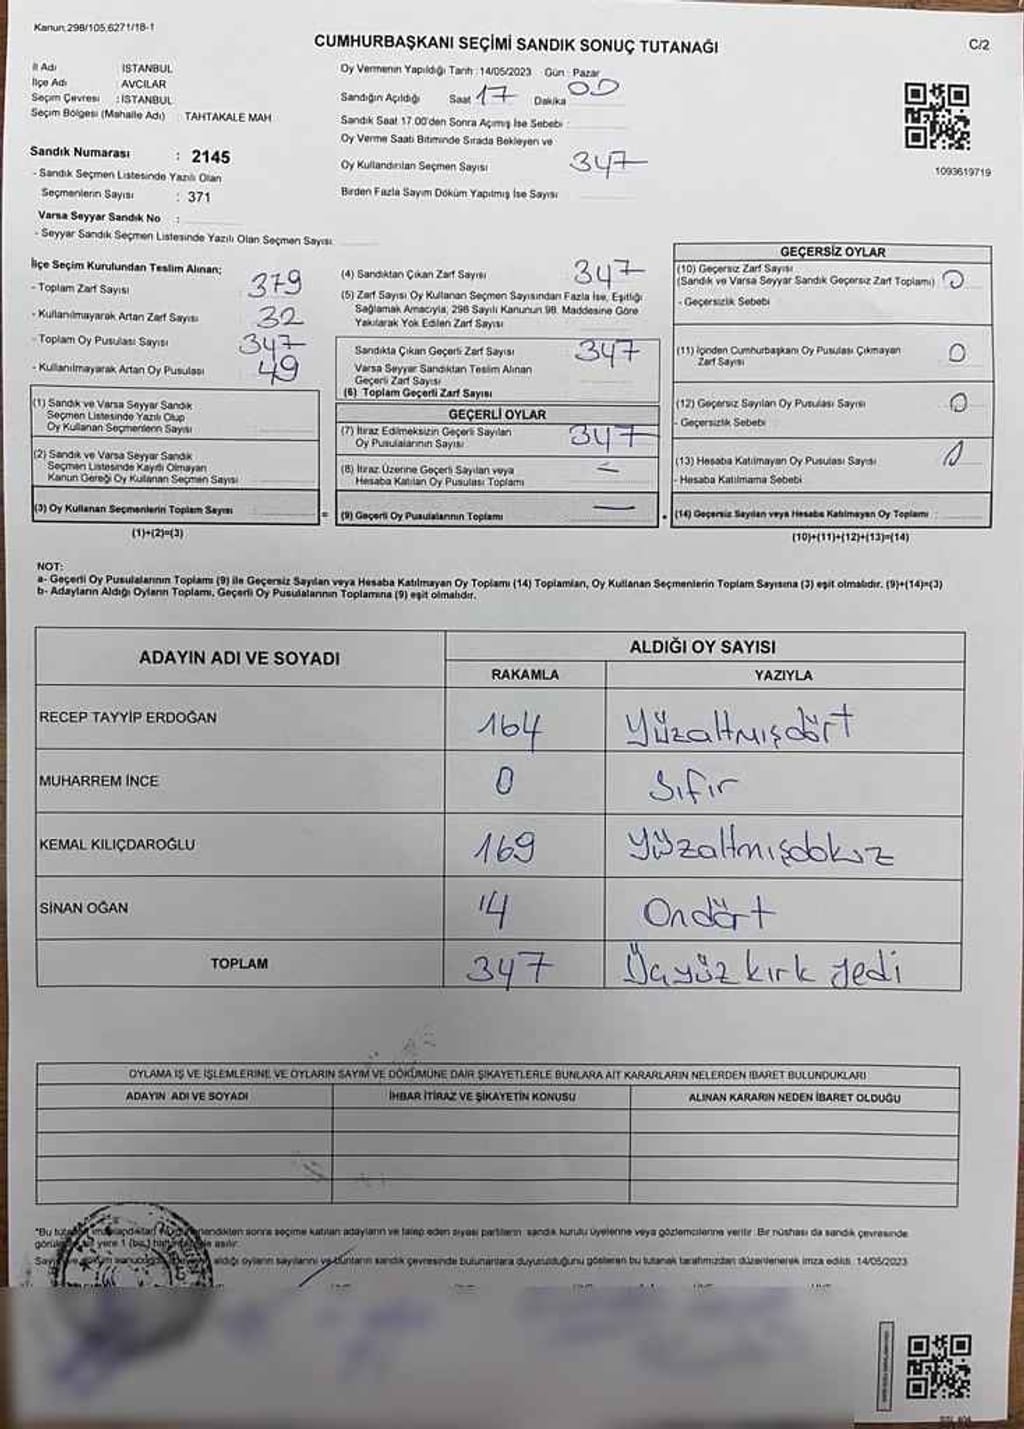 Kanun,298/105,6271/18-1
CUMHURBAŞKANI SEÇİMİ SANDIK SONUÇ TUTANAĞI
C/2
İl Adı : İSTANBUL
İlçe Adı : AVCILAR
Seçim Çevresi : İSTANBUL
Seçim Bölgesi (Mahalle Adı) : TAHTAKALE MAH
Sandık Numarası : 2145
- Sandık Seçmen Listesinde Yazılı Olan
Seçmenlerin Sayısı : 371
Varsa Seyyar Sandık No :
- Seyyar Sandık Seçmen Listesinde Yazılı Olan Seçmen Sayısı:
Oy Vermenin Yapıldığı Tarih : 14/05/2023 Gün : Pazar
Sandığın Açıldığı Saat 17 Dakika 00
Sandık Saat 17.00'den Sonra Açımış İse Sebebi :
Oy Verme Saati Bitiminde Sırada Bekleyen ve
Oy Kullandırılan Seçmen Sayısı 347
Birden Fazla Sayım Döküm Yapılmış İse Sayısı
1093619719
İlçe Seçim Kurulundan Teslim Alınan;
- Toplam Zarf Sayısı 379
- Kullanılmayarak Artan Zarf Sayısı 32
- Toplam Oy Pusulası Sayısı 347
- Kullanılmayarak Artan Oy Pusulası 49
(1) Sandık ve Varsa Seyyar Sandık
Seçmen Listesinde Yazılı Olup
Oy Kullanan Seçmenlerin Sayısı
(2) Sandık ve Varsa Seyyar Sandık
Seçmen Listesinde Kaydı Olmayan
Kanun Gereği Oy Kullanan Seçmen Sayısı
(3) Oy Kullanan Seçmenlerin Toplam Sayısı =
(1)+(2)=(3)
(4) Sandıktan Çıkan Zarf Sayısı 347
(5) Zarf Sayısı Oy Kullanan Seçmen Sayısından Fazla İse, Eşitliği
Sağlamak Amacıyla, 298 Sayılı Kanunun 98. Maddesine Göre
Yakılarak Yok Edilen Zarf Sayısı
Sandıkta Çıkan Geçerli Zarf Sayısı 347
Varsa Seyyar Sandıktan Teslim Alınan
Geçerli Zarf Sayısı
(6) Toplam Geçerli Zarf Sayısı
GEÇERLİ OYLAR
(7) İtiraz Edilmeksizin Geçerli Sayılan
Oy Pusulalarının Sayısı 347
(8) İtiraz Üzerine Geçerli Sayılan veya
Hesaba Katılan Oy Pusulası Toplamı -
(9) Geçerli Oy Pusulalarının Toplamı —
GEÇERSİZ OYLAR
(10) Geçersiz Zarf Sayısı
(Sandık ve Varsa Seyyar Sandık Geçersiz Zarf Toplamı) 0
- Geçersizlik Sebebi
(11) İçinden Cumhurbaşkanı Oy Pusulası Çıkmayan
Zarf Sayısı 0
(12) Geçersiz Sayılan Oy Pusulası Sayısı 0
- Geçersizlik Sebebi
(13) Hesaba Katılmayan Oy Pusulası Sayısı 0
- Hesaba Katılmama Sebebi
(14) Geçersiz Sayılan veya Hesaba Katılmayan Oy Toplamı :
(10)+(11)+(12)+(13)=(14)
NOT:
a- Geçerli Oy Pusulalarının Toplamı (9) ile Geçersiz Sayılan veya Hesaba Katılmayan Oy Toplamı (14) Toplamları, Oy Kullanan Seçmenlerin Toplam Sayısına (3) eşit olmalıdır. (9)+(14)=(3)
b- Adayların Aldığı Oyların Toplamı, Geçerli Oy Pusulalarının Toplamına (9) eşit olmalıdır.
ADAYIN ADI VE SOYADI
ALDIĞI OY SAYISI
RAKAMLA YAZIYLA
RECEP TAYYİP ERDOĞAN 164 Yüzaltmışdört
MUHARREM İNCE 0 Sıfır
KEMAL KILIÇDAROĞLU 169 Yüzaltmışdokuz
SİNAN OĞAN 14 Ondört
TOPLAM 347 Üçyüz kırk yedi
OYLAMA İŞ VE İŞLEMLERİNE VE OYLARIN SAYIM VE DÖKÜMÜNE DAİR ŞİKAYETLERLE BUNLARA AİT KARARLARIN NELERDEN İBARET BULUNDUKLARI
ADAYIN ADI VE SOYADI İHBAR İTİRAZ VE ŞİKAYETİN KONUSU ALINAN KARARIN NEDEN İBARET OLDUĞU
"Bu sonra seçime katılan adayların ve talep eden siyasi partilerin sandık kurulu üyelerine veya gözlemcilerine verilir. Bir nüshası da sandık çevresinde
yere 1 (bir) asılır.
aldığı oyların sayılarını ve bunların sandık çevresinde bulunanlara duyurulduğunu gösteren bu tutanak tarafımızdan düzenlenerek imza edildi. 14/05/2023